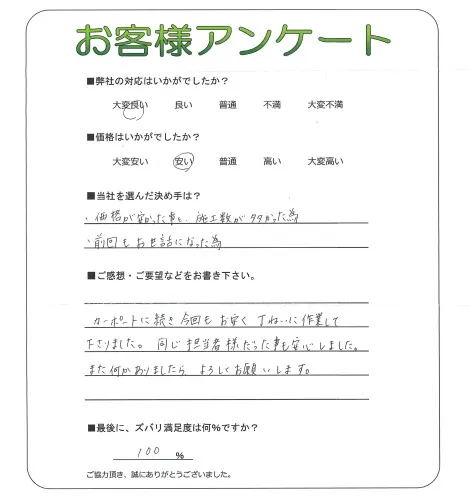 お客様アンケート
■弊社の対応はいかがでしたか？
大変良い 良い 普通 不満 大変不満
■価格はいかがでしたか？
大変安い 安い 普通 高い 大変高い
■当社を選んだ決め手は？
・価格が安かった事と、施工数が多かった為
・前回もお世話になった為
■ご感想・ご要望などをお書き下さい。
カーポートに続き今回もお安く丁ねいに作業して
下さりました。同じ担当者様だった事も安心しました。
また何かありましたら よろしくお願いします。
■最後に、ズバリ満足度は何％ですか？
100 ％
ご協力頂き、誠にありがとうございました。